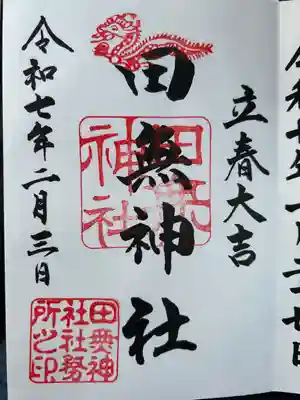 立春大吉
田無神社
田無神社
令和七年二月三日
田無神
社社務
所之印